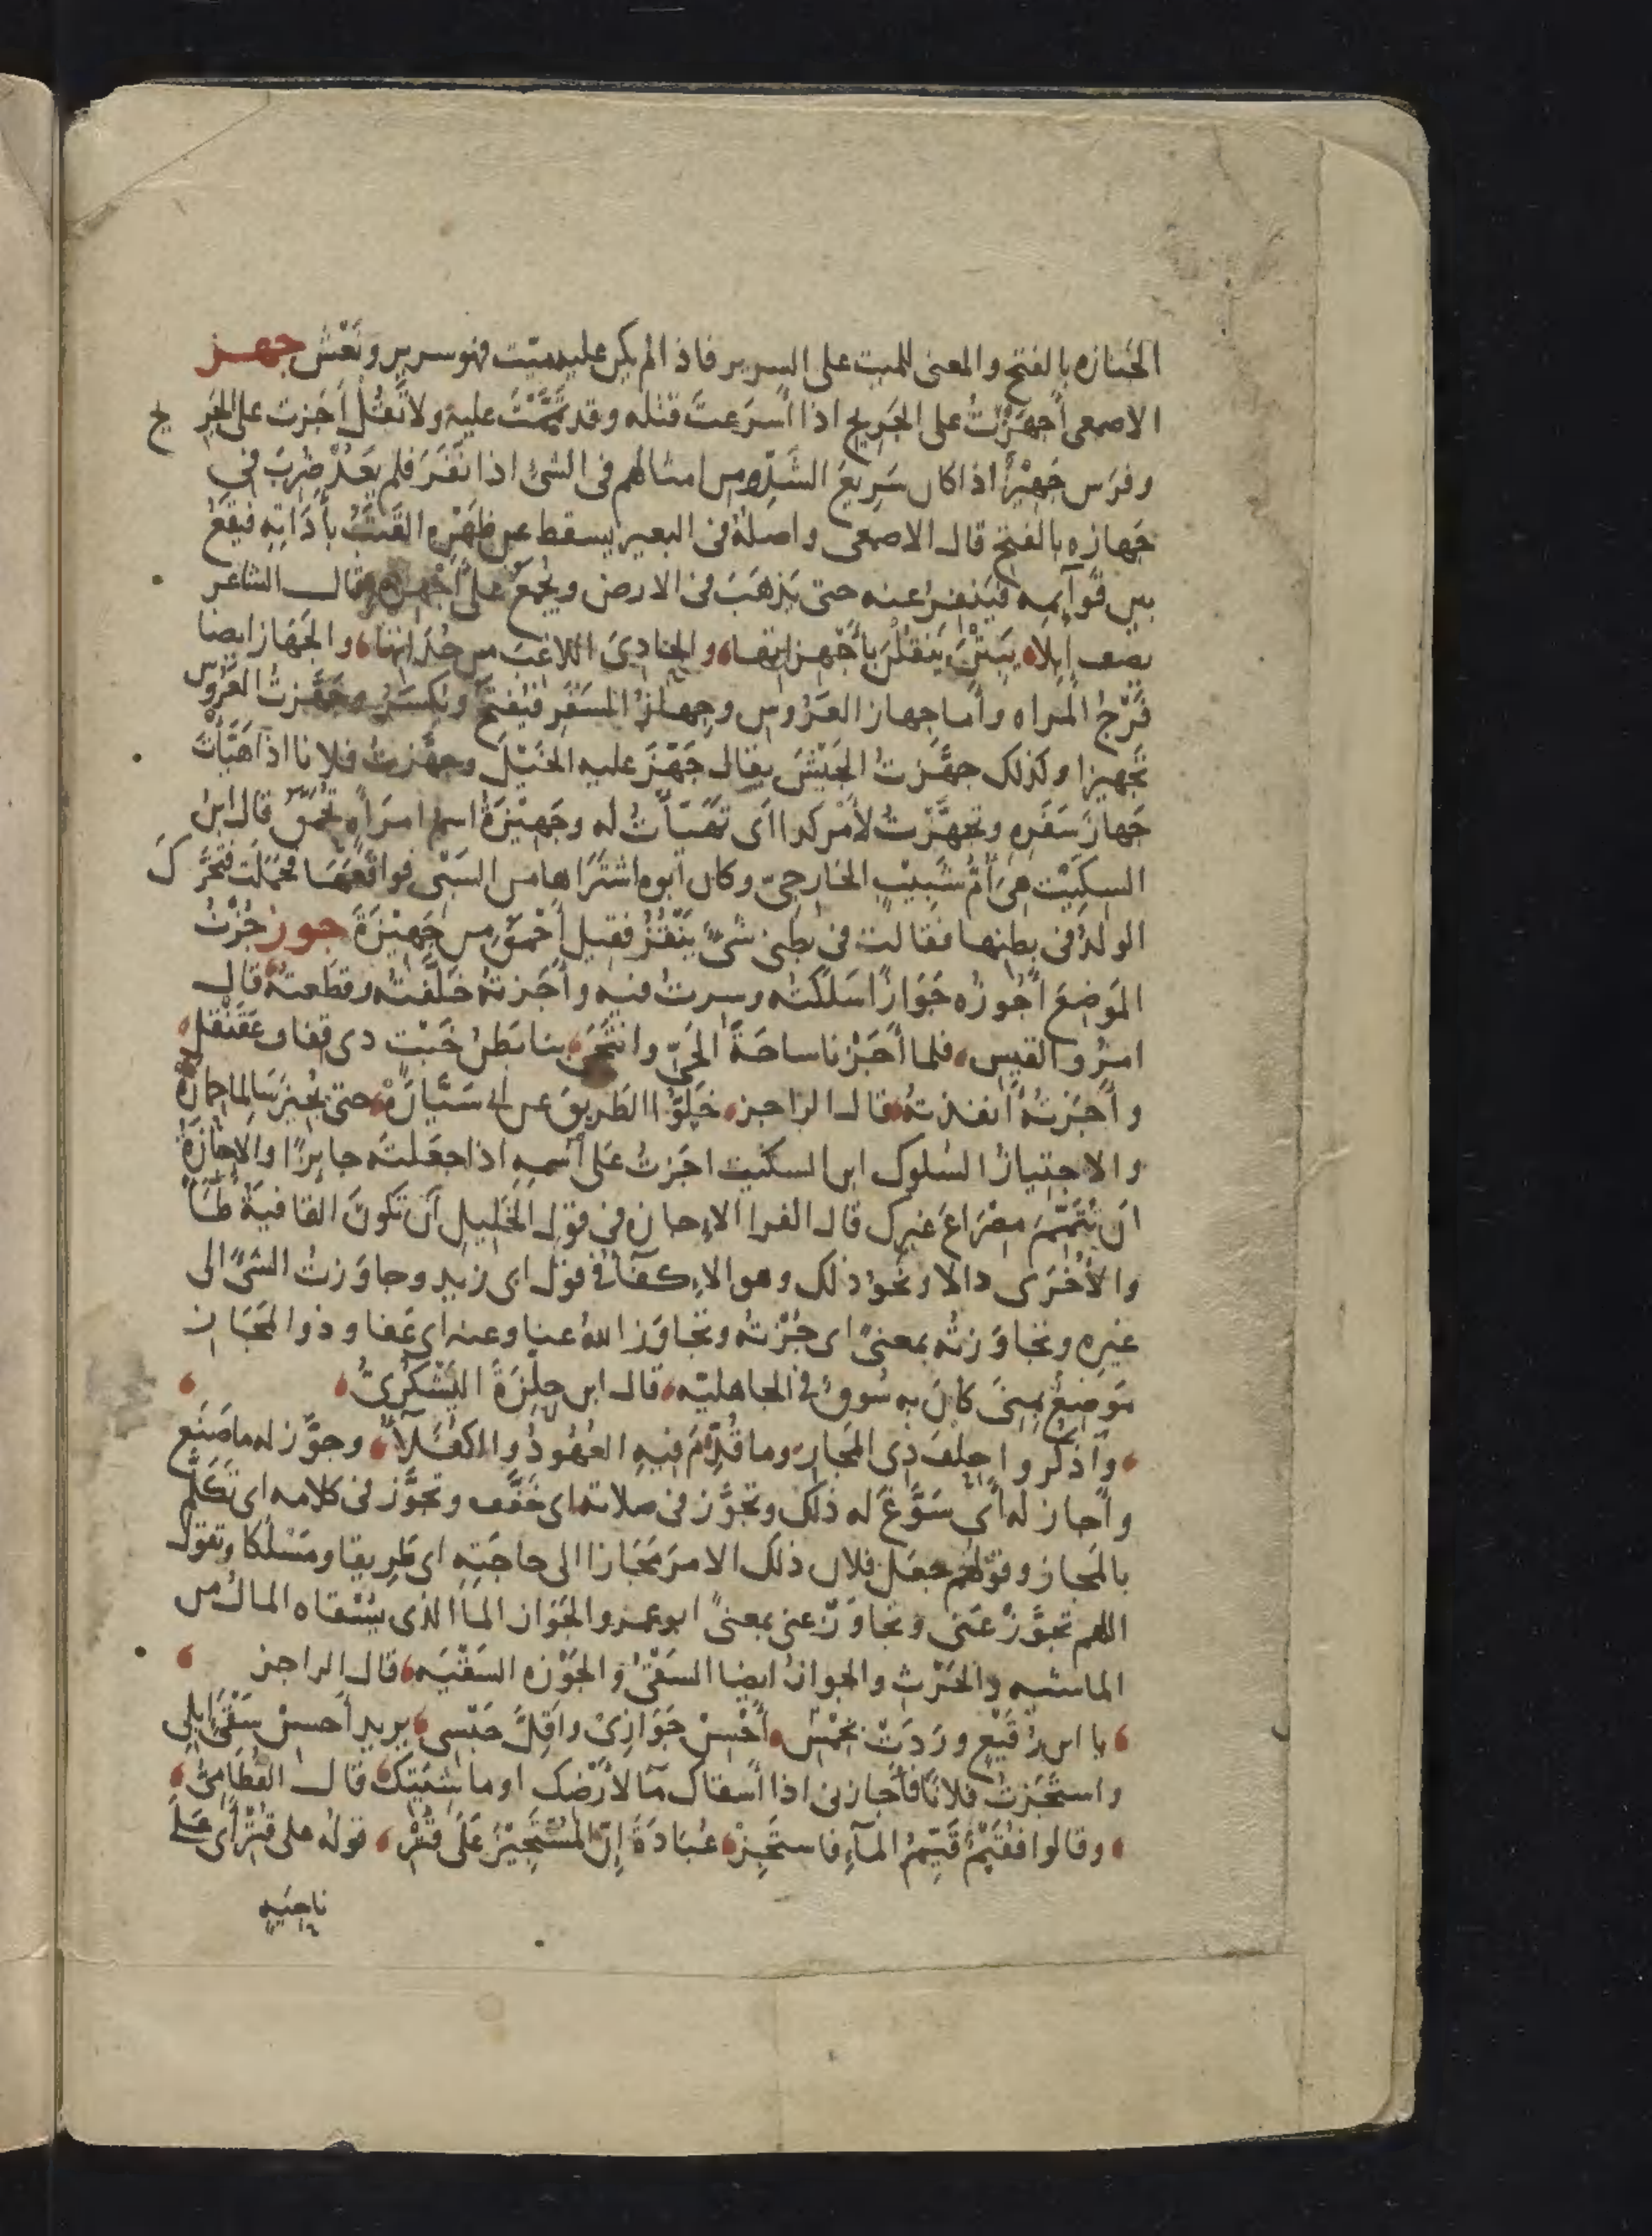 الجنازه بالفتح والمعنى للميت على السرير فاذا لم يكن عليه ميّت فهو سرير ونَعْش جهز
الاصمعى أجهَزْتُ على الجَريح اذا أسرَعتَ قتله وقد تمَّمْتَ عليه ولا تَقُلْ أجَزت على الجَريح
وفرَس جَهِيْزٌ اذا كان سَريعَ الشَّدِّ ومن امثالهم فى الشئ اذا نَفَرَ فلم يَعُدْ ضَرَبَ فى
جَهازه بالفتح قال الاصمعى واصلُهُ فى البعير يسقط عن ظَهْرِه القَتَبُ بأَدَاتِه فيَقَعُ
بين قوآيمه فيَنفِرُ عنه حتى يَذهَبَ فى الارض ويُجمَعُ على أجْهِزَه قال الشاعر
يصف إبلاً يَبِتْنَ يَنقُلْنَ بأَجْهِزاتها والحادِىَ اللاغِبَ من حُدَاتِها والجَهَاز ايضا
فَرْجُ المراه وأما جهاز العَرُوس وجهازُ السَفَر فيُفتَح ويُكسَرُ وجَهَّزتُ العَرُوس
تجهيزا وكذلك جهَّزتُ الجَيْشَ يقال جَهّزَ عليه الخَيْلَ وجهَّزتُ فلانا اذا هَيَّأتَ
جَهازَ سَفَرِه وتجهَّزْتُ لأمْر كذا اى تَهَيّأتُ له وجَهِيْزَةُ اسم امرَأةٍ تُحَمَّقُ قال ابن
السِكّيْت هى أمُّ شَبِيْبٍ الخارجىّ وكان أبوه اشتَرَاها من السَبْى فواقَعَهَا فحَمَلَت فتحَرَّكَ
الولدُ فى بطنها فقالت فى بطنى شىءٌ يَنْقُزُ فقيل أحْمَقُ من جَهِيْزَةَ جوز جُزْتُ
المَوضِعَ أجُوزُه جَوَازًا سَلَكتُه وسِرتُ فيه وأَجَزتُهُ خلَّفتُه وقَطَعتُه قال
امرُؤ القيس فلما أجَزْنا ساحَةَ الحَىِّ وانتَحَى بنا بَطنُ خَبْتٍ ذى قِفافٍ عَقَنْقَلِ
وأجَزتُهُ أنفَذتُه قال الراجز خَلُّوا الطَريقَ عن ابى سَيَّارَهْ حتى يُجيزَ سَالِما حِمارَهُ
والاجتيازُ السُلوك ابن السكيت اجَزتُ عَلى اسْمِه اذا جعَلتَه جايزًا والإجازَةُ
ان تُتَمِّمَ مصْرَاعَ غيرك قال الفرا الاِجازه فى قولِ الخَلِيلِ أن تكونَ القافيَةُ طَاءً
والأُخْرَى دالا ونحوَ ذلك وهو الاِكفَآءُ فى قول ابى زيد وجاوَزتُ الشئَ الى
غيرِه وتجاوَزتُه بمعنىً اى جُزْتُه وتجاوَز اللهُ عنا وعنه اى عَفا وذو المَجَاز
مَوضِعٌ بمِنىَ كانَ به سُوقٌ فى الجاهليّه قال ابن حِلِّزَةَ اليَشْكُرِىُّ
وآذكُروا حِلْفَ ذِى المَجاز وما قُدِّمَ فيهِ العُهُودُ والكفَلَآءُ وجوَّز له ما صَنَع
وأجاز له أى سَوَّغَ له ذلك وتجَوَّز فى صلاته اى خَفَّف وتجوَّز فى كلامه اى تكلَّم
بالمَجاز وقولُهم جعَل فلان ذلك الامرَ مَجَازا الى حاجَتِهِ اى طَرِيقا ومَسْلَكا وتقول
اللهم تجَوَّزْ عَنّى وتجاوَزْ عنى بمعنىً ابو عمرو الجَوَاز الما الذى يُسْقاه المالُ من
الماشيه والحَرْثِ والجوازُ ايضا السَقْىُ والجَوْزه السَقْيَه قال الراجز
يا ابن رُقَيْعٍ ورَدَتْ بخِمْسِ أحْسِنْ جَوَازِىْ وأقِلَّ حَبْسى يريد أحسنْ سَقْىَ إبلى
واستَجَزتُ فلانًا فأجازنى اذا أسقاك مآ لأرْضك او ماشيَتِكَ قال القُطَامِىُّ
وقالوا فُقَيْمٌ قَيِّمُ المآءِ فاستَجِزْ عُبَادَةَ إنّ المُسْتَجِيْزَ عَلَى قُتْرِ قولُه على قُتْر أى على
ناحيَهِ